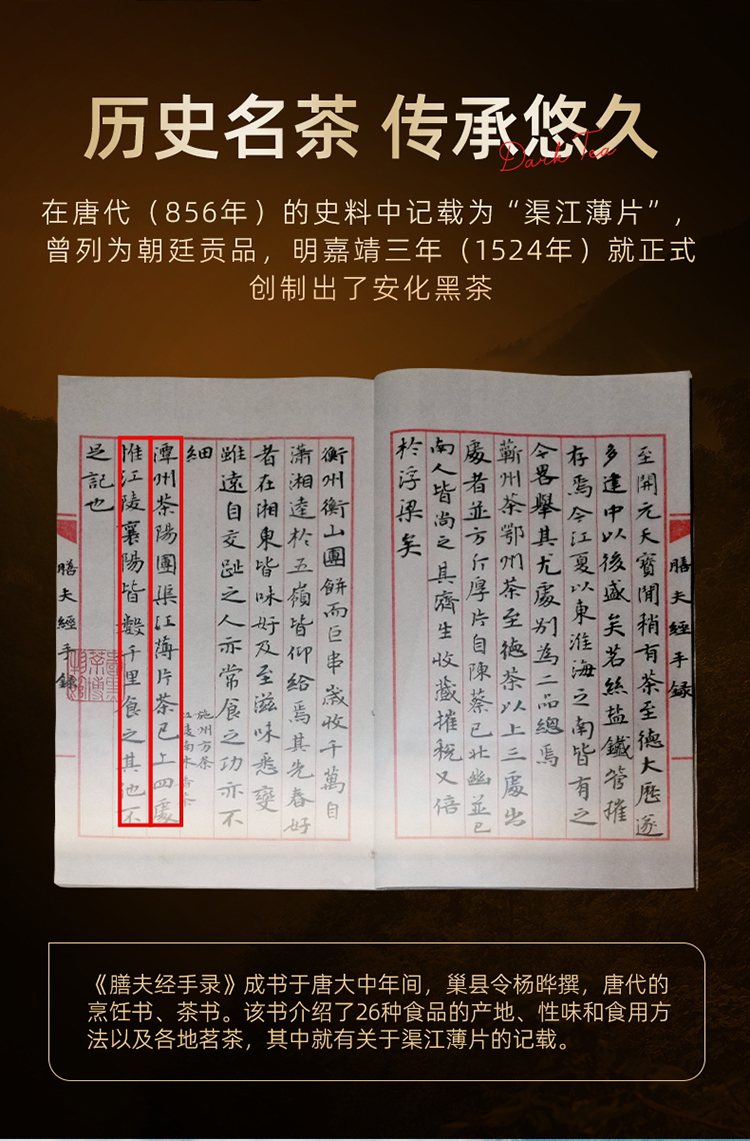 历史名茶 传承悠久
Dark Tea
在唐代（856年）的史料中记载为“渠江薄片”，
曾列为朝廷贡品，明嘉靖三年（1524年）就正式
创制出了安化黑茶
至開元天寶間稍有茶至德大歷遂
多建中以後盛矣茗絲盐鐵管搉
存焉今江夏以東淮海之南皆有之
令畧舉其尤處别為二品總焉
蘄州茶鄂州茶至德茶以上三處出
處者並方斤厚片自陳蔡已北幽並已
南人皆尚之其濟生收藏搉稅又倍
於浮梁矣
衡州衡山團餅而巨串歲收千萬自
瀟湘逵於五嶺皆仰給焉其先春好
者在湘東皆味好及至滋味悉變
雖遠自交趾之人亦常食之功亦不
細
施州方茶
潭州茶陽團渠江薄片茶已上四處
惟江陵襄陽皆數千里食之其他不
足記也
膳夫經手録
膳夫經手録
《膳夫经手录》成书于唐大中年间，巢县令杨晔撰，唐代的
烹饪书、茶书。该书介绍了26种食品的产地、性味和食用方
法以及各地茗茶，其中就有关于渠江薄片的记载。